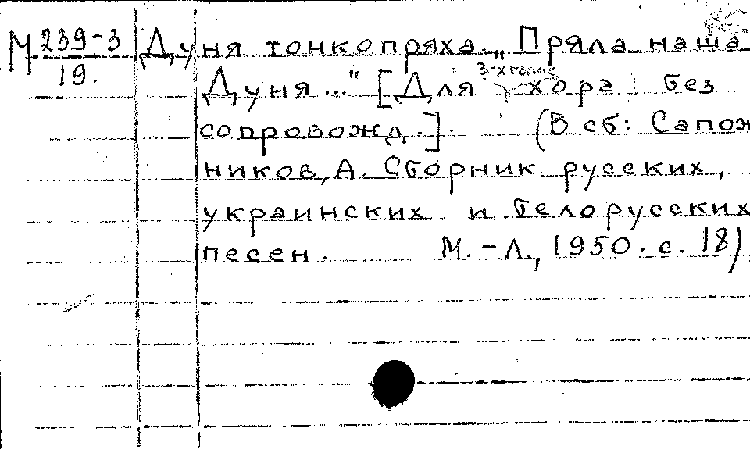 М 239-3 Дуня тонкопряха. „Пряла наша
19. Дуня..." [Для 3-хголос. хора без
сопровожд.] (В сб: Сапож
ников, А. Сборник русских,
украинских и белорусских
песен. М.-Л., 1950. с. 18)